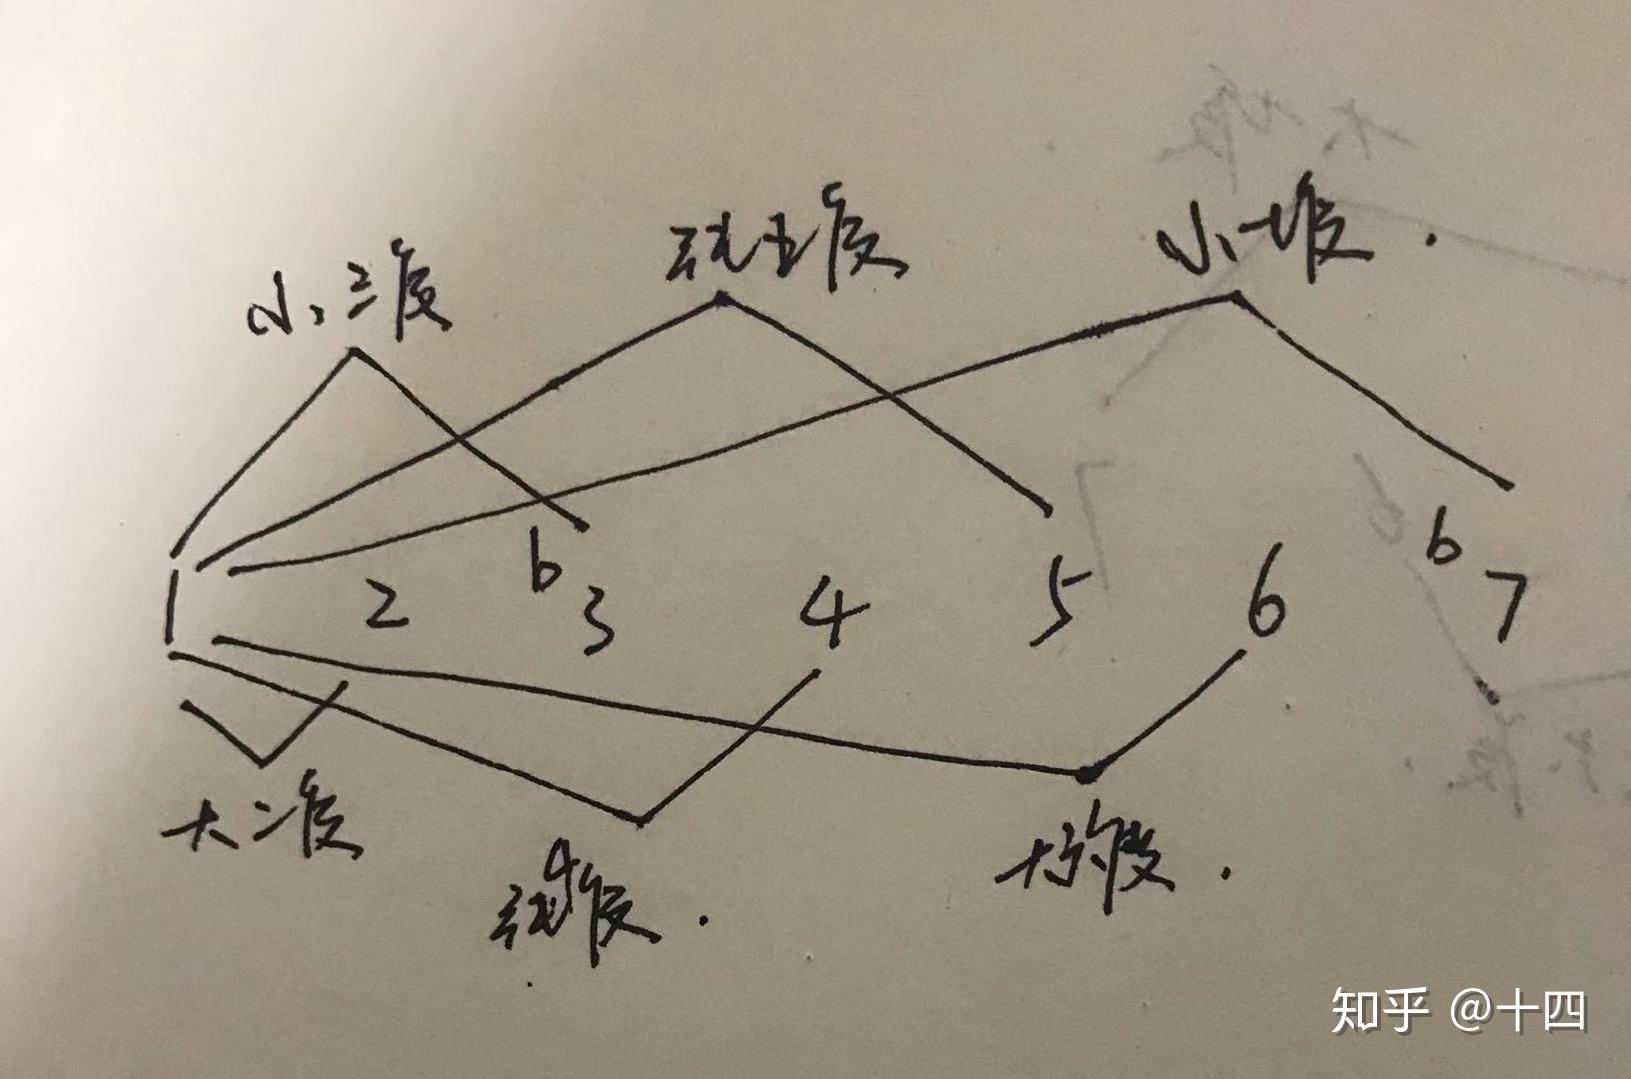 小三度 纯五度 小七度.
1 2 b3 4 5 6 b7
大二度 纯4度. 大六度.
知乎 @十四